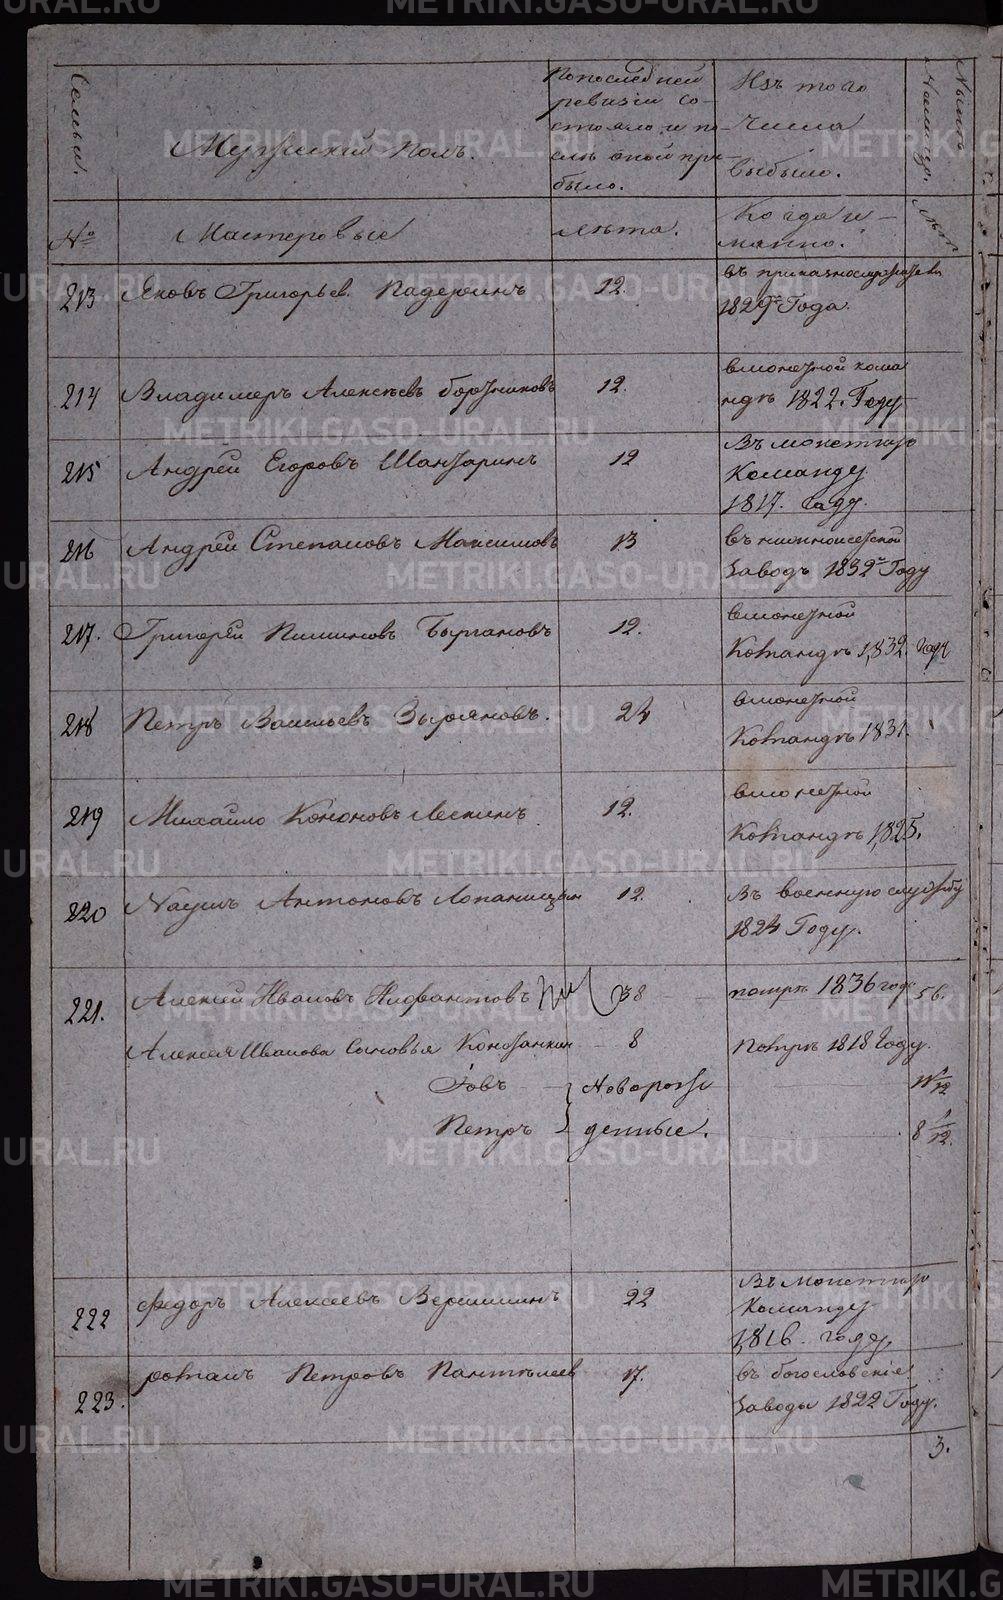 METRIKI.GASO-URAL.RU
Семьи.
Мужеский полъ.
По последней
ревизiи со-
стояло и по-
слѣ оной при-
было.
Изъ того
числа
выбыло.
Нынѣ
на лицо.
№
Мастеровые
лѣта.
Когда и
мянно.
лѣт
213 Яковъ Григорьев. Падеринъ 12.
въ приказнослужители
1829го Года.
214 Владимеръ Алексѣевъ 12.
вмонетной кома
ндѣ 1822. Году
215 Андрей Егоровъ 12
Въ монетную
Команду
1817. году.
216 Андрей Степановъ Максимовъ 13
въ нижноисетской
заводъ 1832го Году
217. Григорей 12.
вмонетной
Командѣ 1832. году
218 Петръ Васильевъ Зыряновъ. 24
вмонетной
Командѣ 1831.
219 Михайло Кононовъ 12.
вмонетной
Командѣ 1825.
220 Наумъ Антоновъ 12.
Въ военную службу
1824 Году.
221. Алексей Ивановъ 38 помрѣ 1836 году 56.
Алексея Иванова Сыновья Констанкин 8 помрѣ 1818 году.
Iовъ
новорож
Петръ
денные.
8 1/12.
222 Федоръ Алексеевъ Вершининъ 22
Въ монетную
Команду
1816. году.
223. романъ Петровъ Пантѣлеев 17.
въ богословскiе
заводы 1822 Году.
3.